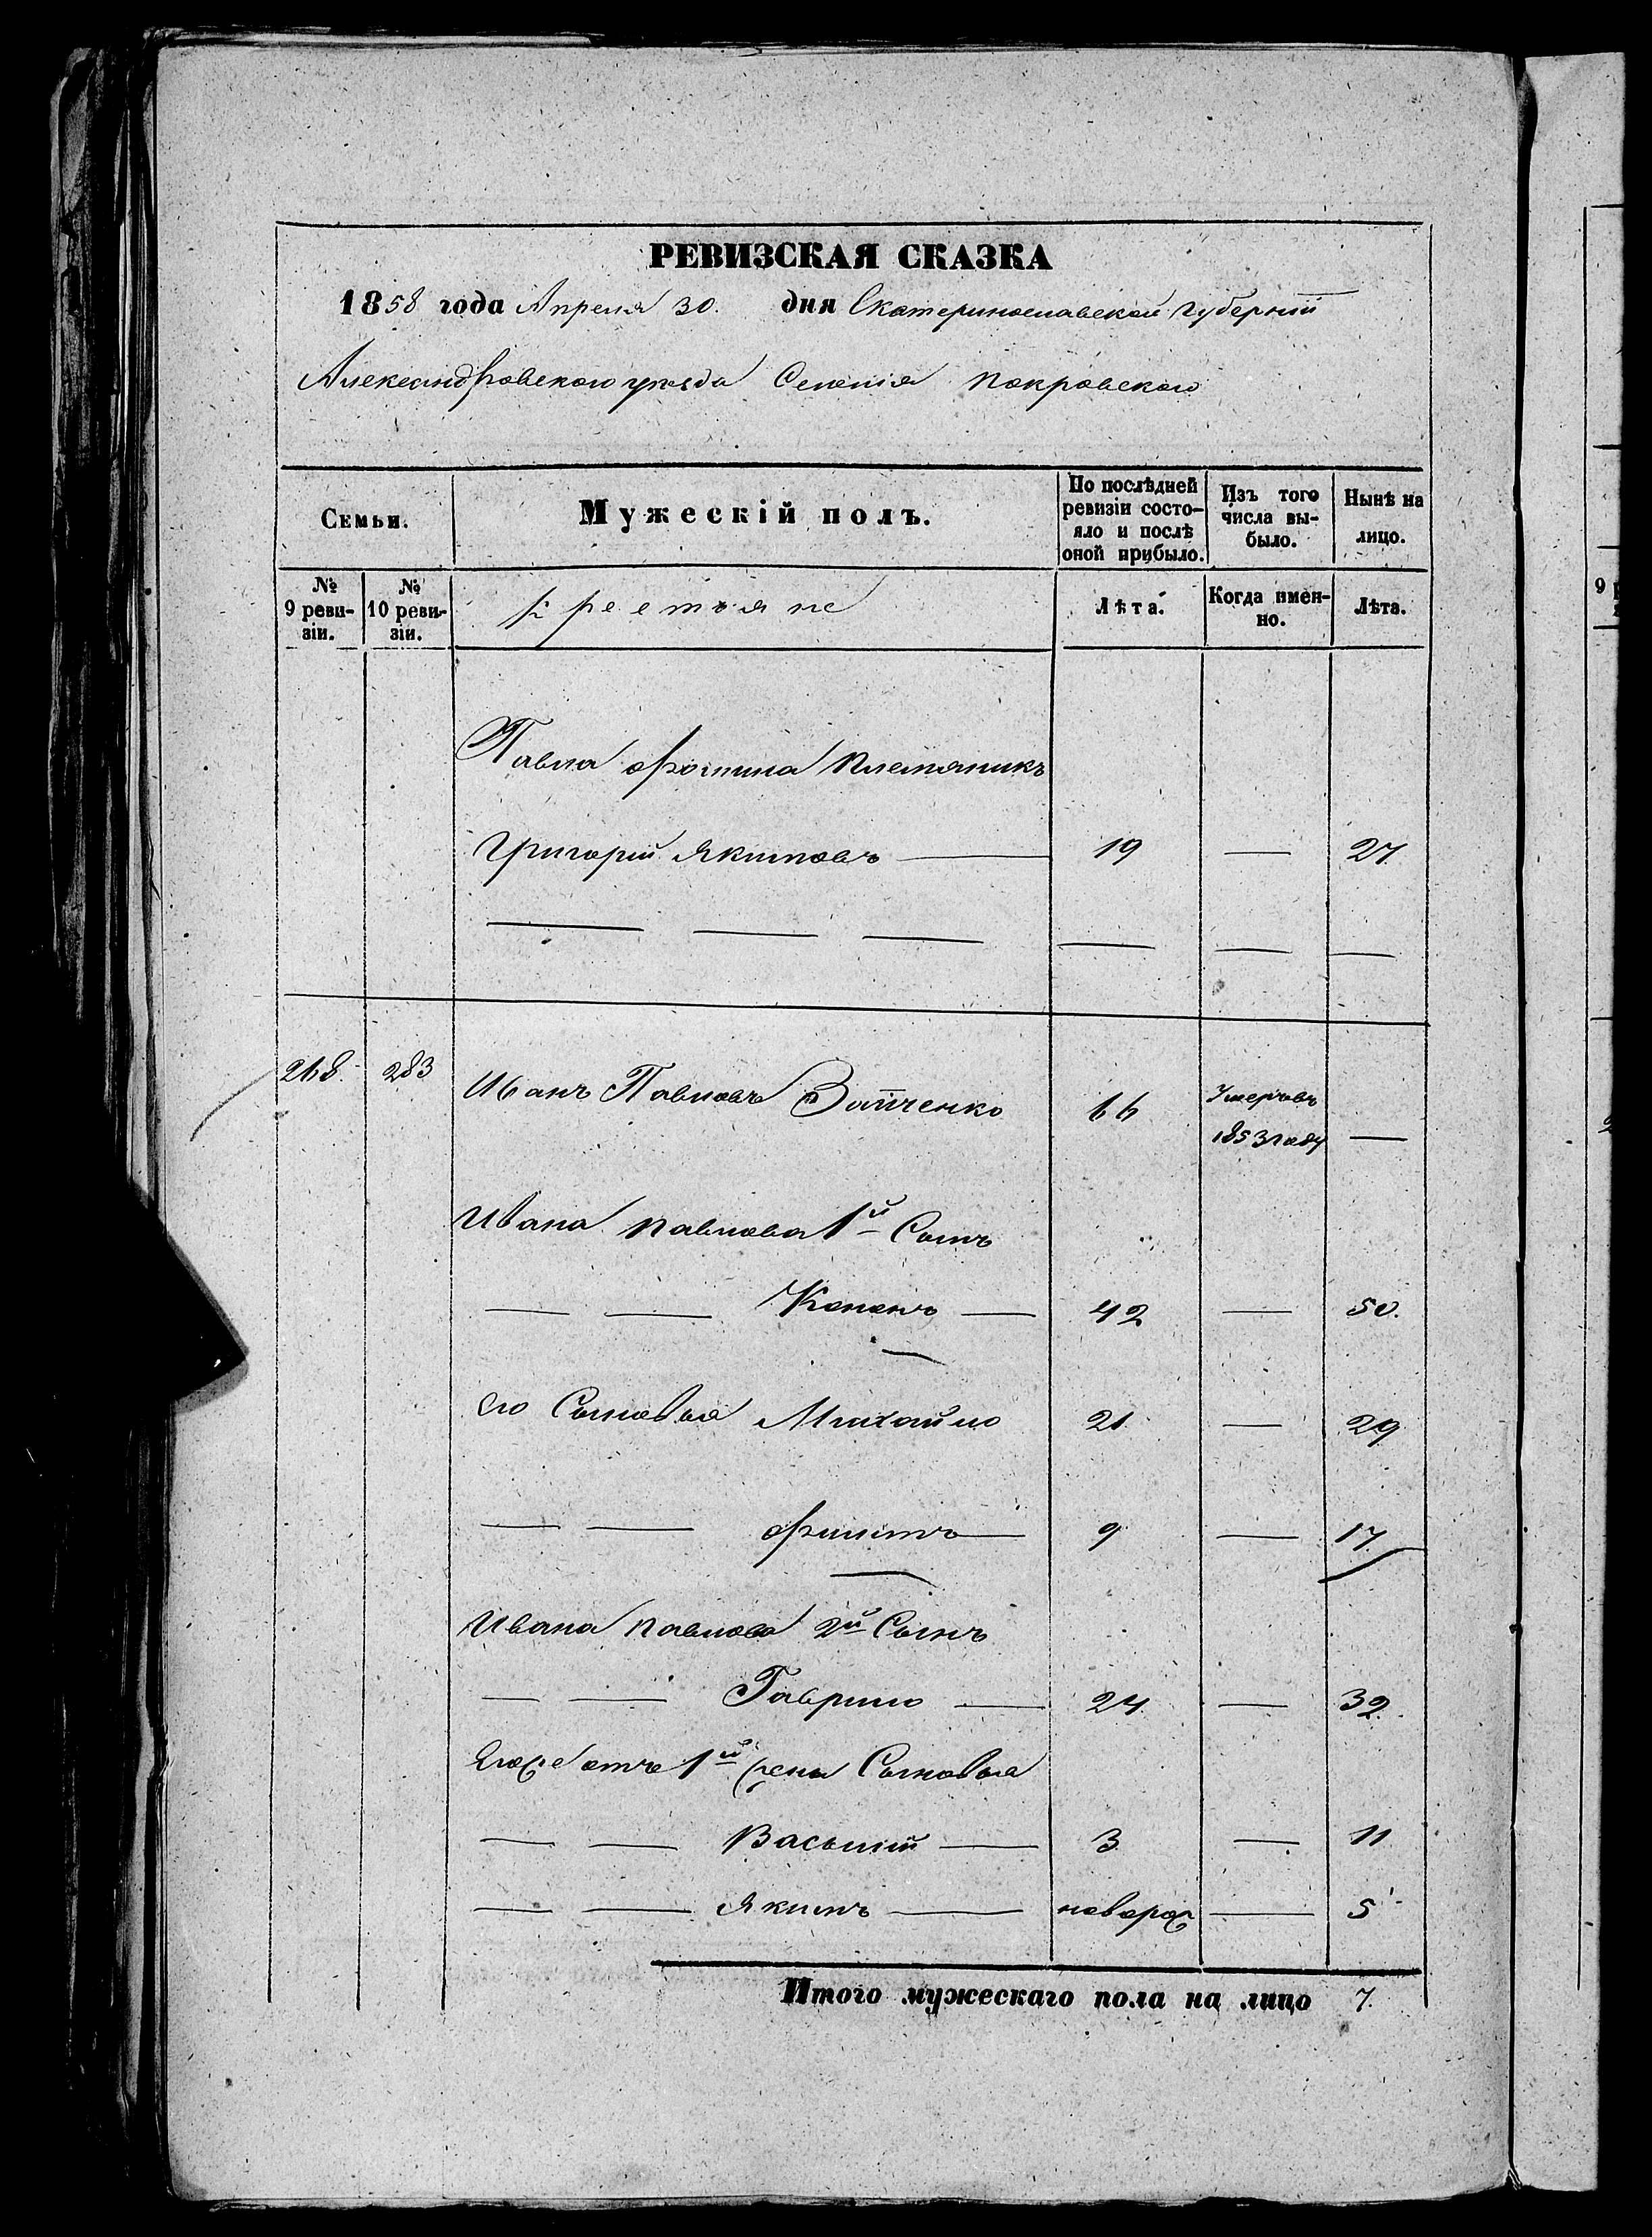 РЕВИЗСКАЯ СКАЗКА
1858 года Апреля 30. дня Екатеринославской губерніи
Александровскаго уѣзда Селенія Покровскаго
Семьи.
Мужескій полъ.
По послѣдней ревизіи состо-
яло и послѣ
оной прибыло.
Изъ того
числа вы-
было.
Нынѣ на
лицо.
№
9 реви-
зіи.
№
10 реви-
зіи.
Крестьяне
Лѣта.
Когда имен-
но.
Лѣта.
Павла Фомина племяникъ
Григорій Якимовъ — 19 — 27
— — — — — —
268. 283 Иванъ Павловъ Зайченко 66 Умеръ въ
1853 году —
Ивана Павлова 1й Сынъ
— — Кононъ — 42 — 50.
его Сыновья Михайло 21 — 29
— — Филипъ — 9 — 17.
Ивана Павлова 2й Сынъ
— — Гаврило — 24 — 32.
Его же отъ 1й жены Сыновья
— — Василій — 3 — 11
— — Якимъ — новорож — 5
Итого мужескаго пола на лицо 7.
9